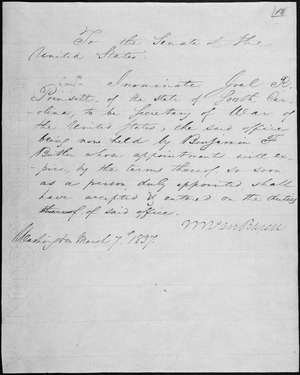 To the Senate of the
United States.
I nominate Joel R.
Poinsett, of the State of South Car-
olina, to be Secretary of War of
the United States, the said office
being now held by Benjamin F
Butler whose appointment will ex-
pire, by the terms thereof so soon
as a person duly appointed shall
have accepted & entered on the duties
thereof of said office.
M Van Buren
Washington March 7th 1837.